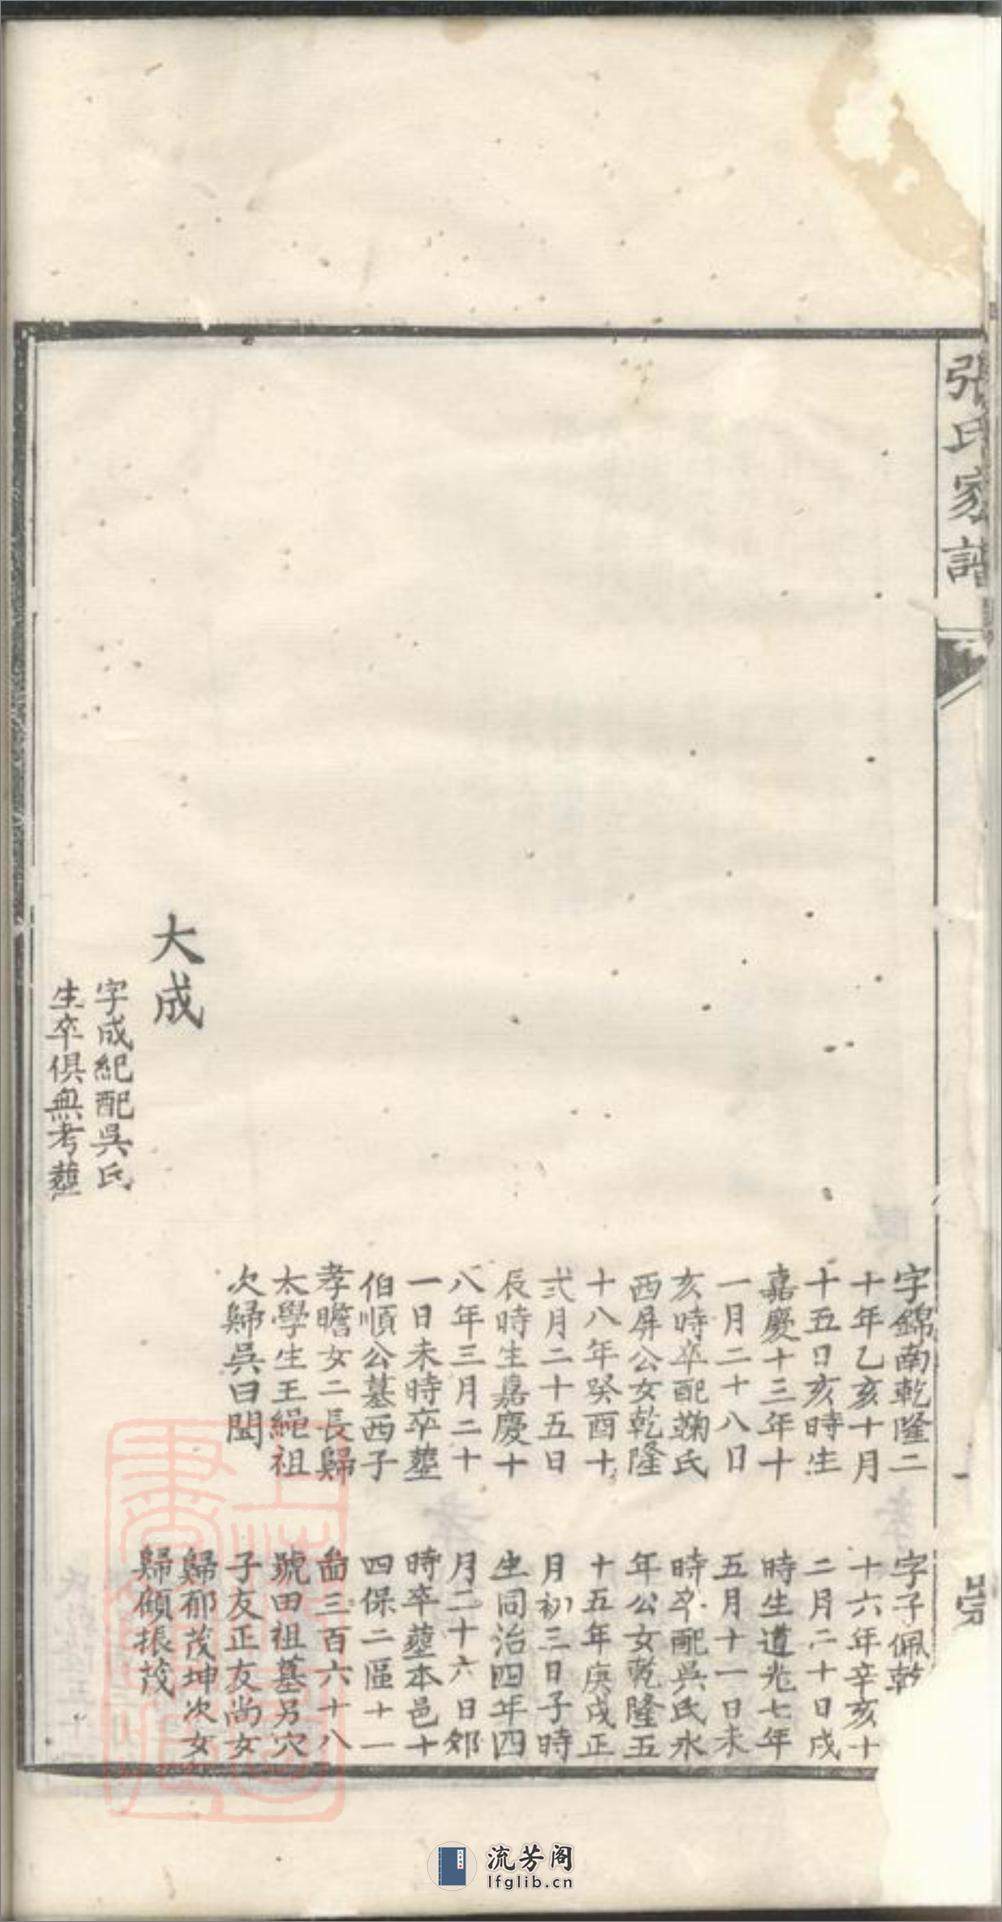 張氏家譜
字錦南乾隆二
十年乙亥十月
十五日亥時生
嘉慶十三年十
一月二十八日
亥時卒配鞠氏
西屏公女乾隆
十八年癸酉十
弍月二十五日
辰時生嘉慶十
八年三月二十
一日未時卒塟
伯順公墓西子
孝瞻女二長歸
太學生王繩祖
次歸吳曰閏
字子佩乾
十六年辛亥十
二月二十日戌
時生道光七年
五月十一日未
時卒配吳氏永
年公女乾隆五
十五年庚戌正
月初三日子時
生同治四年四
月二十六日夘
時卒塟本邑十
四保二區十一
啚三百六十八
號田祖墓另穴
子友正友尚女
歸郁茂坤次女
歸傾振茂
大成
字成紀配吳氏
生卒俱無考塟
流芳阁
lfglib.cn